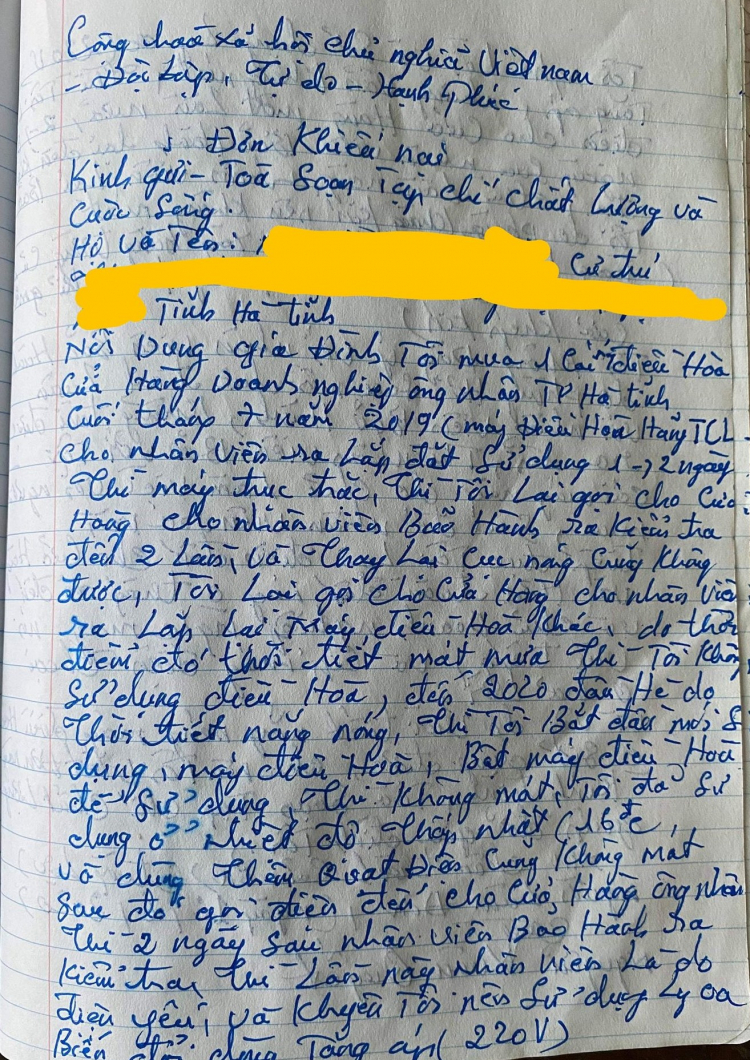 Cộng hoà xã hội chủ nghĩa Việt nam
- Độc Lập, Tự do - Hạnh Phúc
Đơn Khiếu nại
Kính gửi - Toà Soạn Tạp chí chất Lượng và
Cuộc Sống.
Họ và Tên:
Cư trú
Tỉnh Hà tĩnh
Nội Dung gia Đình Tôi mua 1 cái điều Hoà
Của Hàng Doanh nghiệp ông nhân TP Hà tĩnh
Cuối tháng 7 năm 2019 (máy Điều Hoà Hãng TCL
cho nhân viên ra Lắp đặt sử dụng 1 → 2 ngày
Thì máy trục trặc, Thì Tôi Lại gọi cho Cửa
Hàng cho nhân viên Bảo Hành ra kiểm tra
đến 2 Lần, và Thay Lại cục nóng cũng không
được, Tôi Lại gọi cho Cửa Hàng cho nhân viên
ra Lắp Lại máy điều Hoà khác, do thời
điểm đó thời tiết mát mưa Thì Tôi không
sử dụng điều Hoà, đến 2020 đầu Hè do
Thời tiết nắng nóng, Thì Tôi Bắt đầu mới s
dụng, máy điều Hoà, Bật máy điều Hoà
để sử dụng, Thì không mát, Tôi đã sử
dụng ở nhiệt độ thấp nhất (16 độ c,
và dùng thêm Quạt Điện Cũng không mát
sau đó gọi điện đến cho Cửa Hàng ông nhân
Thì 2 ngày sau nhân viên Bảo Hành ra
kiểm tra, thì Lần này nhân viên Là do
điện yếu, và khuyên Tôi nên sử dụng Ly oa
Biến dùng Tăng áp (220V)